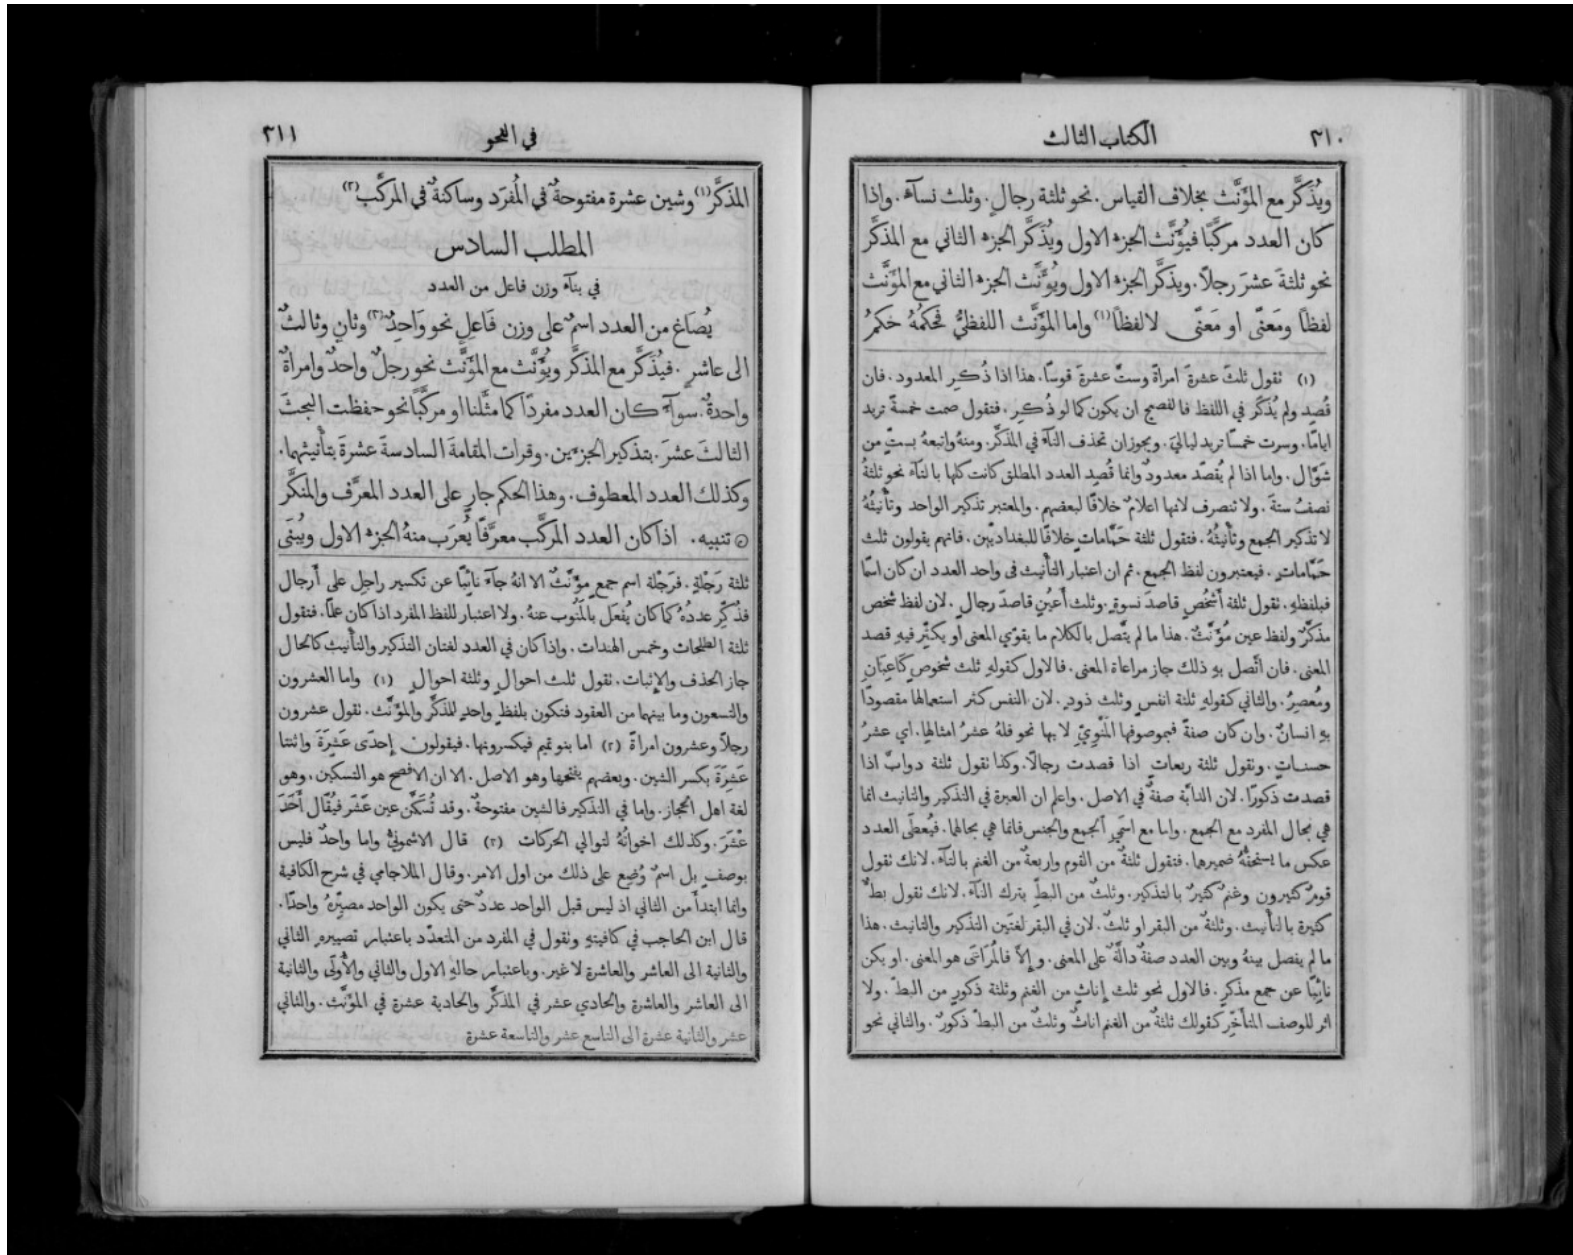 ٣١٠
الكتاب الثالث
ويُذَكَّر مع المؤَنَّث بخلاف القياس. نحو ثلثة رجالٍ. وثلث نسآءٍ. واذا
كان العدد مركَّبًا فيُؤَنَّث الجزء الاول ويُذَكَّر الجزء الثاني مع المذكَّر
نحو ثلثةَ عشرَ رجلاً. ويذكَّر الجزء الاول ويُؤَنَّث الجزء الثاني مع المؤَنَّث
لفظًا ومَعنًى او مَعنًى لا لفظًا (١) واما المؤَنَّث اللفظيُّ فحكمُهُ حكمُ
(١) تقول ثلثَ عشرةَ امراةً وستَّ عشرةَ قوسًا. هذا اذا ذُكِر المعدود. فان
قُصِد ولم يُذكَر في اللفظ فالفصيح ان يكون كما لو ذُكِر. فتقول صمت خمسةً تريد
ايامًا. وسرت خمسًا تريد لياليَ. ويجوز ان تحذف التآءُ في المذكَّر. ومنهُ واتبعهُ بستٍّ من
شوَّال. واما اذا لم يُقصَد معدودٌ وانما قُصِد العدد المطلق كانت كلها بالتآء نحو ثلثةُ
نصفُ ستةَ. ولا تنصرف لانها اعلامٌ خلافًا لبعضهم. والمعتبر تذكير الواحد وتأْنيثُهُ
لا تذكير الجمع وتأْنيثُهُ. فتقول ثلثة حَمَّاماتٍ خلافًا للبغداديّين. فانهم يقولون ثلث
حَمَّاماتٍ. فيعتبرون لفظ الجمع. ثم ان اعتبار التأْنيث في واحد العدد ان كان اسمًا
فبلفظهِ. تقول ثلثة أَشخُصٍ قاصدَ نسوةٍ. وثلث أَعيُنٍ قاصدَ رجالٍ. لان لفظ شخص
مذكَّرٌ ولفظ عين مُؤَنَّثٌ. هذا ما لم يتَّصل بالكلام ما يقوّي المعنى او يكثَّر فيهِ قصد
المعنى. فان اتَّصل بهِ ذلك جاز مراعاة المعنى. فالاول كقولهِ ثلث شخوصٍ كَاعِبَانِ
ومُعصِرُ. والثاني كقولهِ ثلثة انفسٍ وثلث ذودٍ. لان النفس كثر استعمالها مقصودًا
بهِ انسانٌ. وان كان صفةً فبموصوفها المَنْوِيّ لا بها نحو فلهُ عشرُ امثالها. اي عشرُ
حسناتٍ. وتقول ثلثة ربعاتٍ اذا قصدت رجالاً. وكذا تقول ثلثة دوابَّ اذا
قصدت ذكورًا. لان الدابّة صفةٌ في الاصل. واعلم ان العبرة في التذكير والتانيث انما
هي بحال المفرد مع الجمع. واما مع اسمَيِ الجمع والجنس فانما هي بحالهما. فيُعطَى العدد
عكس ما يستحقُّهُ ضميرها. فتقول ثلثةٌ من القوم واربعةٌ من الغنم بالتآء. لانك تقول
قومٌ كثيرون وغنمٌ كثيرٌ بالتذكير. وثلثٌ من البطّ بترك التآء. لانك تقول بطٌّ
كثيرة بالتأْنيث. وثلثةٌ من البقر او ثلثٌ. لان في البقر لغتَين التذكير والتانيث. هذا
ما لم يفصل بينهُ وبين العدد صفةٌ دالَّةٌ على المعنى. وإلاَّ فالمُرَاعَى هو المعنى. او يكن
نائبًا عن جمع مذكرٍ. فالاول نحو ثلث إناثٍ من الغنم وثلثة ذكورٍ من البطّ. ولا
اثر للوصف المتأَخِّر كقولك ثلثةٌ من الغنم اناثٌ وثلثٌ من البطّ ذكورٌ. والثاني نحو
في النحو
٣١١
المذكَّر (١) وشين عشرة مفتوحةٌ في المُفرَد وساكنةٌ في المركَّب (٢)
المطلب السادس
في بنآء وزن فاعل من العدد
يُصَاغ من العدد اسمٌ على وزن فَاعِلٍ نحو وَاحِدٍ (٣) وثانٍ وثالثٍ
الى عاشرٍ. فيُذَكَّر مع المذكَّر ويُؤَنَّث مع المؤَنَّث نحو رجلٌ واحدٌ وامراةٌ
واحدةٌ. سوآءٌ كان العدد مفردًا كما مثَّلنا او مركَّبًا نحو حفظت البحثَ
الثالثَ عشرَ. بتذكير الجزءَين. وقرات المقامةَ السادسةَ عشرةَ بتأْنيثهما.
وكذلك العدد المعطوف. وهذا الحكم جارٍ على العدد المعرَّف والمنكَّر
تنبيه. اذا كان العدد المركَّب معرَّفًا يُعرَب منهُ الجزء الاول ويُبنَى
ثلثة رَجْلةٍ. فرَجْلة اسم جمعٍ مؤَنَّثٌ الا انهُ جآءَ نائبًا عن تكسير راجلٍ على أَرجال
فذُكِّر عددُهُ كما كان يُفعَل بالمَنُوب عنهُ. ولا اعتبار للفظ المفرد اذا كان علمًا. فتقول
ثلثة الطلحات وخمس الهندات. واذا كان في العدد لغتان التذكير والتأْنيث كالحال
جاز الحذف والإثبات. تقول ثلث احوالٍ وثلثة احوالٍ (١) واما العشرون
والتسعون وما بينهما من العقود فتكون بلفظٍ واحدٍ للمذكَّر والمؤَنَّث. تقول عشرون
رجلاً وعشرون امراةً (٢) اما بنو تميم فيكسرونها. فيقولون إحدَى عَشِرَةَ واثنتا
عَشِرَةَ بكسر الشين. وبعضهم يفتحها وهو الاصل. الا ان الافصح هو التسكين. وهو
لغة اهل الحجاز. واما في التذكير فالشين مفتوحةٌ. وقد تُسَكَّن عين عَشَر فيُقَال أَحَدَ
عْشَرَ. وكذلك اخواتُهُ لتوالي الحركات (٣) قال الاشمونيُّ واما واحدٌ فليس
بوصفٍ بل اسمٌ وُضِع على ذلك من اول الامر. وقال الملاجامي في شرح الكافية
وانما ابتدأَ من الثاني اذ ليس قبل الواحد عددٌ حتى يكون الواحد مصيِّرهُ واحدًا.
قال ابن الحاجب في كافيتهِ وتقول في المفرد من المتعدّد باعتبار تصييرهِ الثاني
والثانية الى العاشر والعاشرة لا غير. وباعتبار حالهِ الاول والثاني والأُولَى والثانية
الى العاشر والعاشرة والحادي عشر في المذكَّر والحادية عشرة في المؤَنَّث. والثاني
عشر والثانية عشرة الى التاسع عشر والتاسعة عشرة